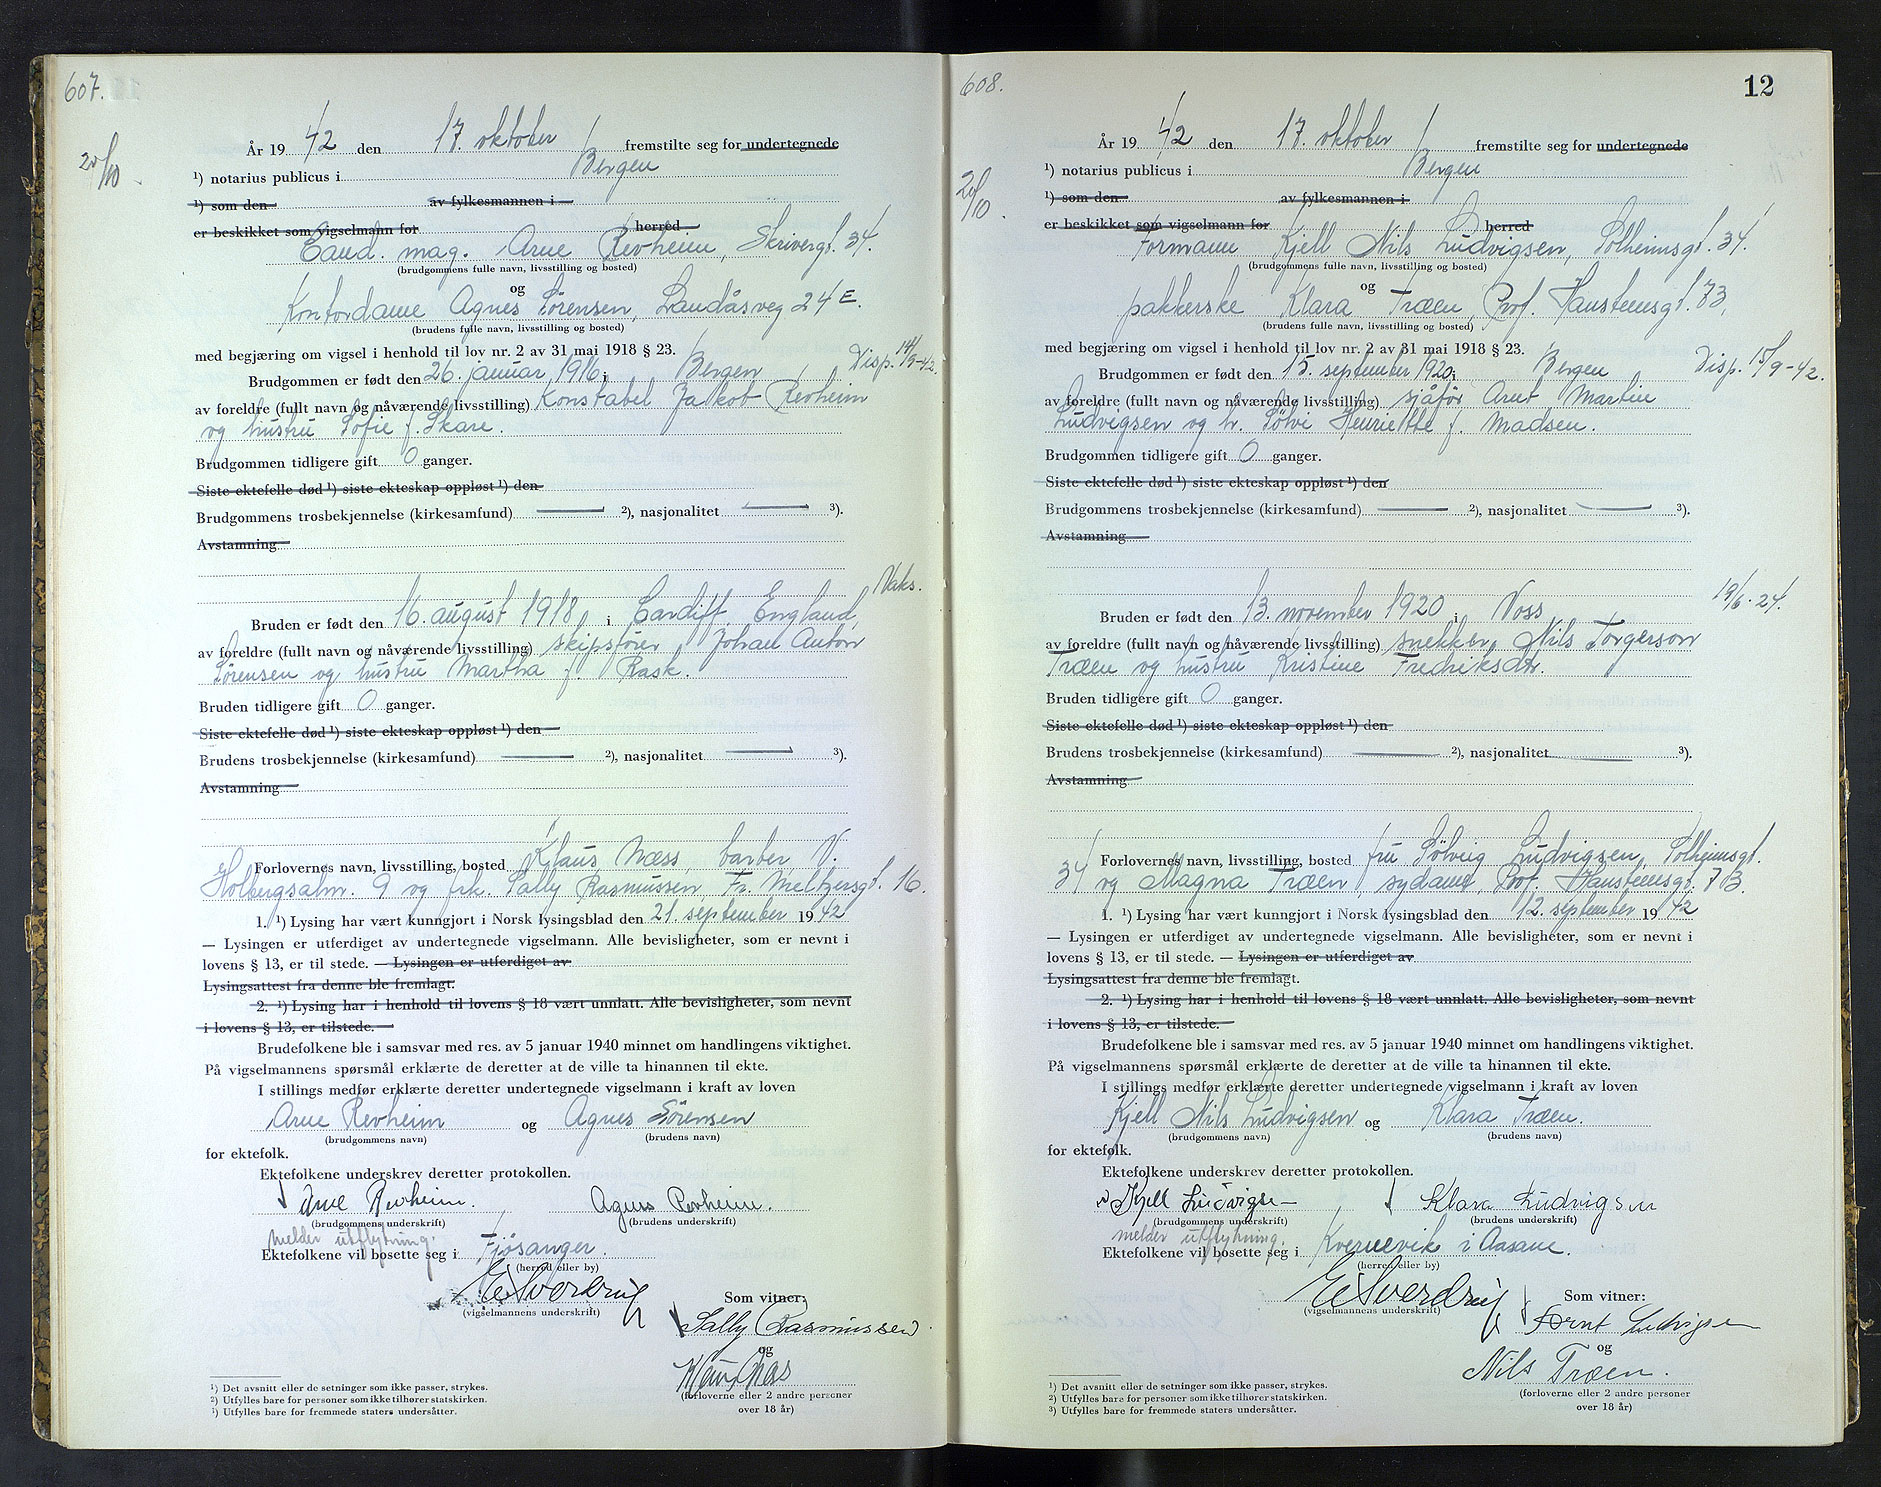 607.
20/10.
År 19 42 den 17. oktober fremstilte seg for undertegnede
¹) notarius publicus i Bergen
¹) som den av fylkesmannen i
er beskikket som vigselmann for herred
Cand. mag. Arne Revheim, Skivergt. 34.
(brudgommens fulle navn, livsstilling og bosted)
og
Kontordame Agnes Sørensen, Landåsveg 24 E.
(brudens fulle navn, livsstilling og bosted)
med begjæring om vigsel i henhold til lov nr. 2 av 31 mai 1918 § 23.
Disp. 14/9-42.
Brudgommen er født den 26. januar 1916 i Bergen
av foreldre (fullt navn og nåværende livsstilling) Konstabel Jakob Revheim
og hustru Sofie f. Skare.
Brudgommen tidligere gift 0 ganger.
Siste ektefelle død ¹) siste ekteskap oppløst ¹) den
Brudgommens trosbekjennelse (kirkesamfund) — ²), nasjonalitet — ³).
Avstamning
Vaks.
Bruden er født den 16. august 1918 i Cardiff, England,
av foreldre (fullt navn og nåværende livsstilling) skipsfører Johan Anton
Sørensen og hustru Martha f. Rask.
Bruden tidligere gift 0 ganger.
Siste ektefelle død ¹) siste ekteskap oppløst ¹) den
Brudens trosbekjennelse (kirkesamfund) — ²), nasjonalitet — ³).
Avstamning
Forlovernes navn, livsstilling, bosted Klaus Næss, barber V.
Holbergsalm. 9 og frk. Sally Rasmussen, Fr. Meltzersgt. 16.
1. ¹) Lysing har vært kunngjort i Norsk lysingsblad den 21. september 1942
— Lysingen er utferdiget av undertegnede vigselmann. Alle bevisligheter, som er nevnt i
lovens § 13, er til stede. — Lysingen er utferdiget av
Lysingsattest fra denne ble fremlagt.
2. ¹) Lysing har i henhold til lovens § 18 vært unnlatt. Alle bevisligheter, som nevnt
i lovens § 13, er tilstede.
Brudefolkene ble i samsvar med res. av 5 januar 1940 minnet om handlingens viktighet.
På vigselmannens spørsmål erklærte de deretter at de ville ta hinannen til ekte.
I stillings medfør erklærte deretter undertegnede vigselmann i kraft av loven
Arne Revheim og Agnes Sørensen
(brudgommens navn) (brudens navn)
for ektefolk.
Ektefolkene underskrev deretter protokollen.
Arne Revheim. Agnes Revheim.
(brudgommens underskrift) (brudens underskrift)
melder utflytning.
Ektefolkene vil bosette seg i Fjøsanger.
(herred eller by)
E Sverdrup
(vigselmannens underskrift)
Som vitner:
Sally Rasmussen
og
Klaus Næs
(forloverne eller 2 andre personer
over 18 år)
¹) Det avsnitt eller de setninger som ikke passer, strykes.
²) Utfylles bare for personer som ikke tilhører statskirken.
³) Utfylles bare for fremmede staters undersåtter.
608.
12
20/10.
År 19 42 den 17. oktober fremstilte seg for undertegnede
¹) notarius publicus i Bergen
¹) som den av fylkesmannen i
er beskikket som vigselmann for herred
Formann Kjell Nils Ludvigsen, Solheimsgt. 34.
(brudgommens fulle navn, livsstilling og bosted)
og
pakkerske Klara Træen, Prof. Hansteensgt. 73,
(brudens fulle navn, livsstilling og bosted)
med begjæring om vigsel i henhold til lov nr. 2 av 31 mai 1918 § 23.
Disp. 15/9-42.
Brudgommen er født den 15. september 1920 i Bergen
av foreldre (fullt navn og nåværende livsstilling) sjåfør Arnt Martin
Ludvigsen og h. Sölvi Henriette f. Madsen.
Brudgommen tidligere gift 0 ganger.
Siste ektefelle død ¹) siste ekteskap oppløst ¹) den
Brudgommens trosbekjennelse (kirkesamfund) — ²), nasjonalitet — ³).
Avstamning
19/6-24.
Bruden er født den 13. november 1920 i Voss
av foreldre (fullt navn og nåværende livsstilling) snekker Nils Torgerson
Træen og hustru Kristine Fredriksdtr.
Bruden tidligere gift 0 ganger.
Siste ektefelle død ¹) siste ekteskap oppløst ¹) den
Brudens trosbekjennelse (kirkesamfund) — ²), nasjonalitet — ³).
Avstamning
Forlovernes navn, livsstilling, bosted fru Sölvig Ludvigsen, Solheimsgt.
34 og Magna Træen, sydame, Prof. Hansteensgt. 73.
1. ¹) Lysing har vært kunngjort i Norsk lysingsblad den 12. september 1942
— Lysingen er utferdiget av undertegnede vigselmann. Alle bevisligheter, som er nevnt i
lovens § 13, er til stede. — Lysingen er utferdiget av
Lysingsattest fra denne ble fremlagt.
2. ¹) Lysing har i henhold til lovens § 18 vært unnlatt. Alle bevisligheter, som nevnt
i lovens § 13, er tilstede.
Brudefolkene ble i samsvar med res. av 5 januar 1940 minnet om handlingens viktighet.
På vigselmannens spørsmål erklærte de deretter at de ville ta hinannen til ekte.
I stillings medfør erklærte deretter undertegnede vigselmann i kraft av loven
Kjell Nils Ludvigsen og Klara Træen.
(brudgommens navn) (brudens navn)
for ektefolk.
Ektefolkene underskrev deretter protokollen.
Kjell Ludvigsen Klara Ludvigsen
(brudgommens underskrift) (brudens underskrift)
melder utflytning.
Ektefolkene vil bosette seg i Kvernevik i Aasane.
(herred eller by)
E Sverdrup
(vigselmannens underskrift)
Som vitner:
Arnt Ludvigsen
og
Nils Træen.
(forloverne eller 2 andre personer
over 18 år)
¹) Det avsnitt eller de setninger som ikke passer, strykes.
²) Utfylles bare for personer som ikke tilhører statskirken.
³) Utfylles bare for fremmede staters undersåtter.